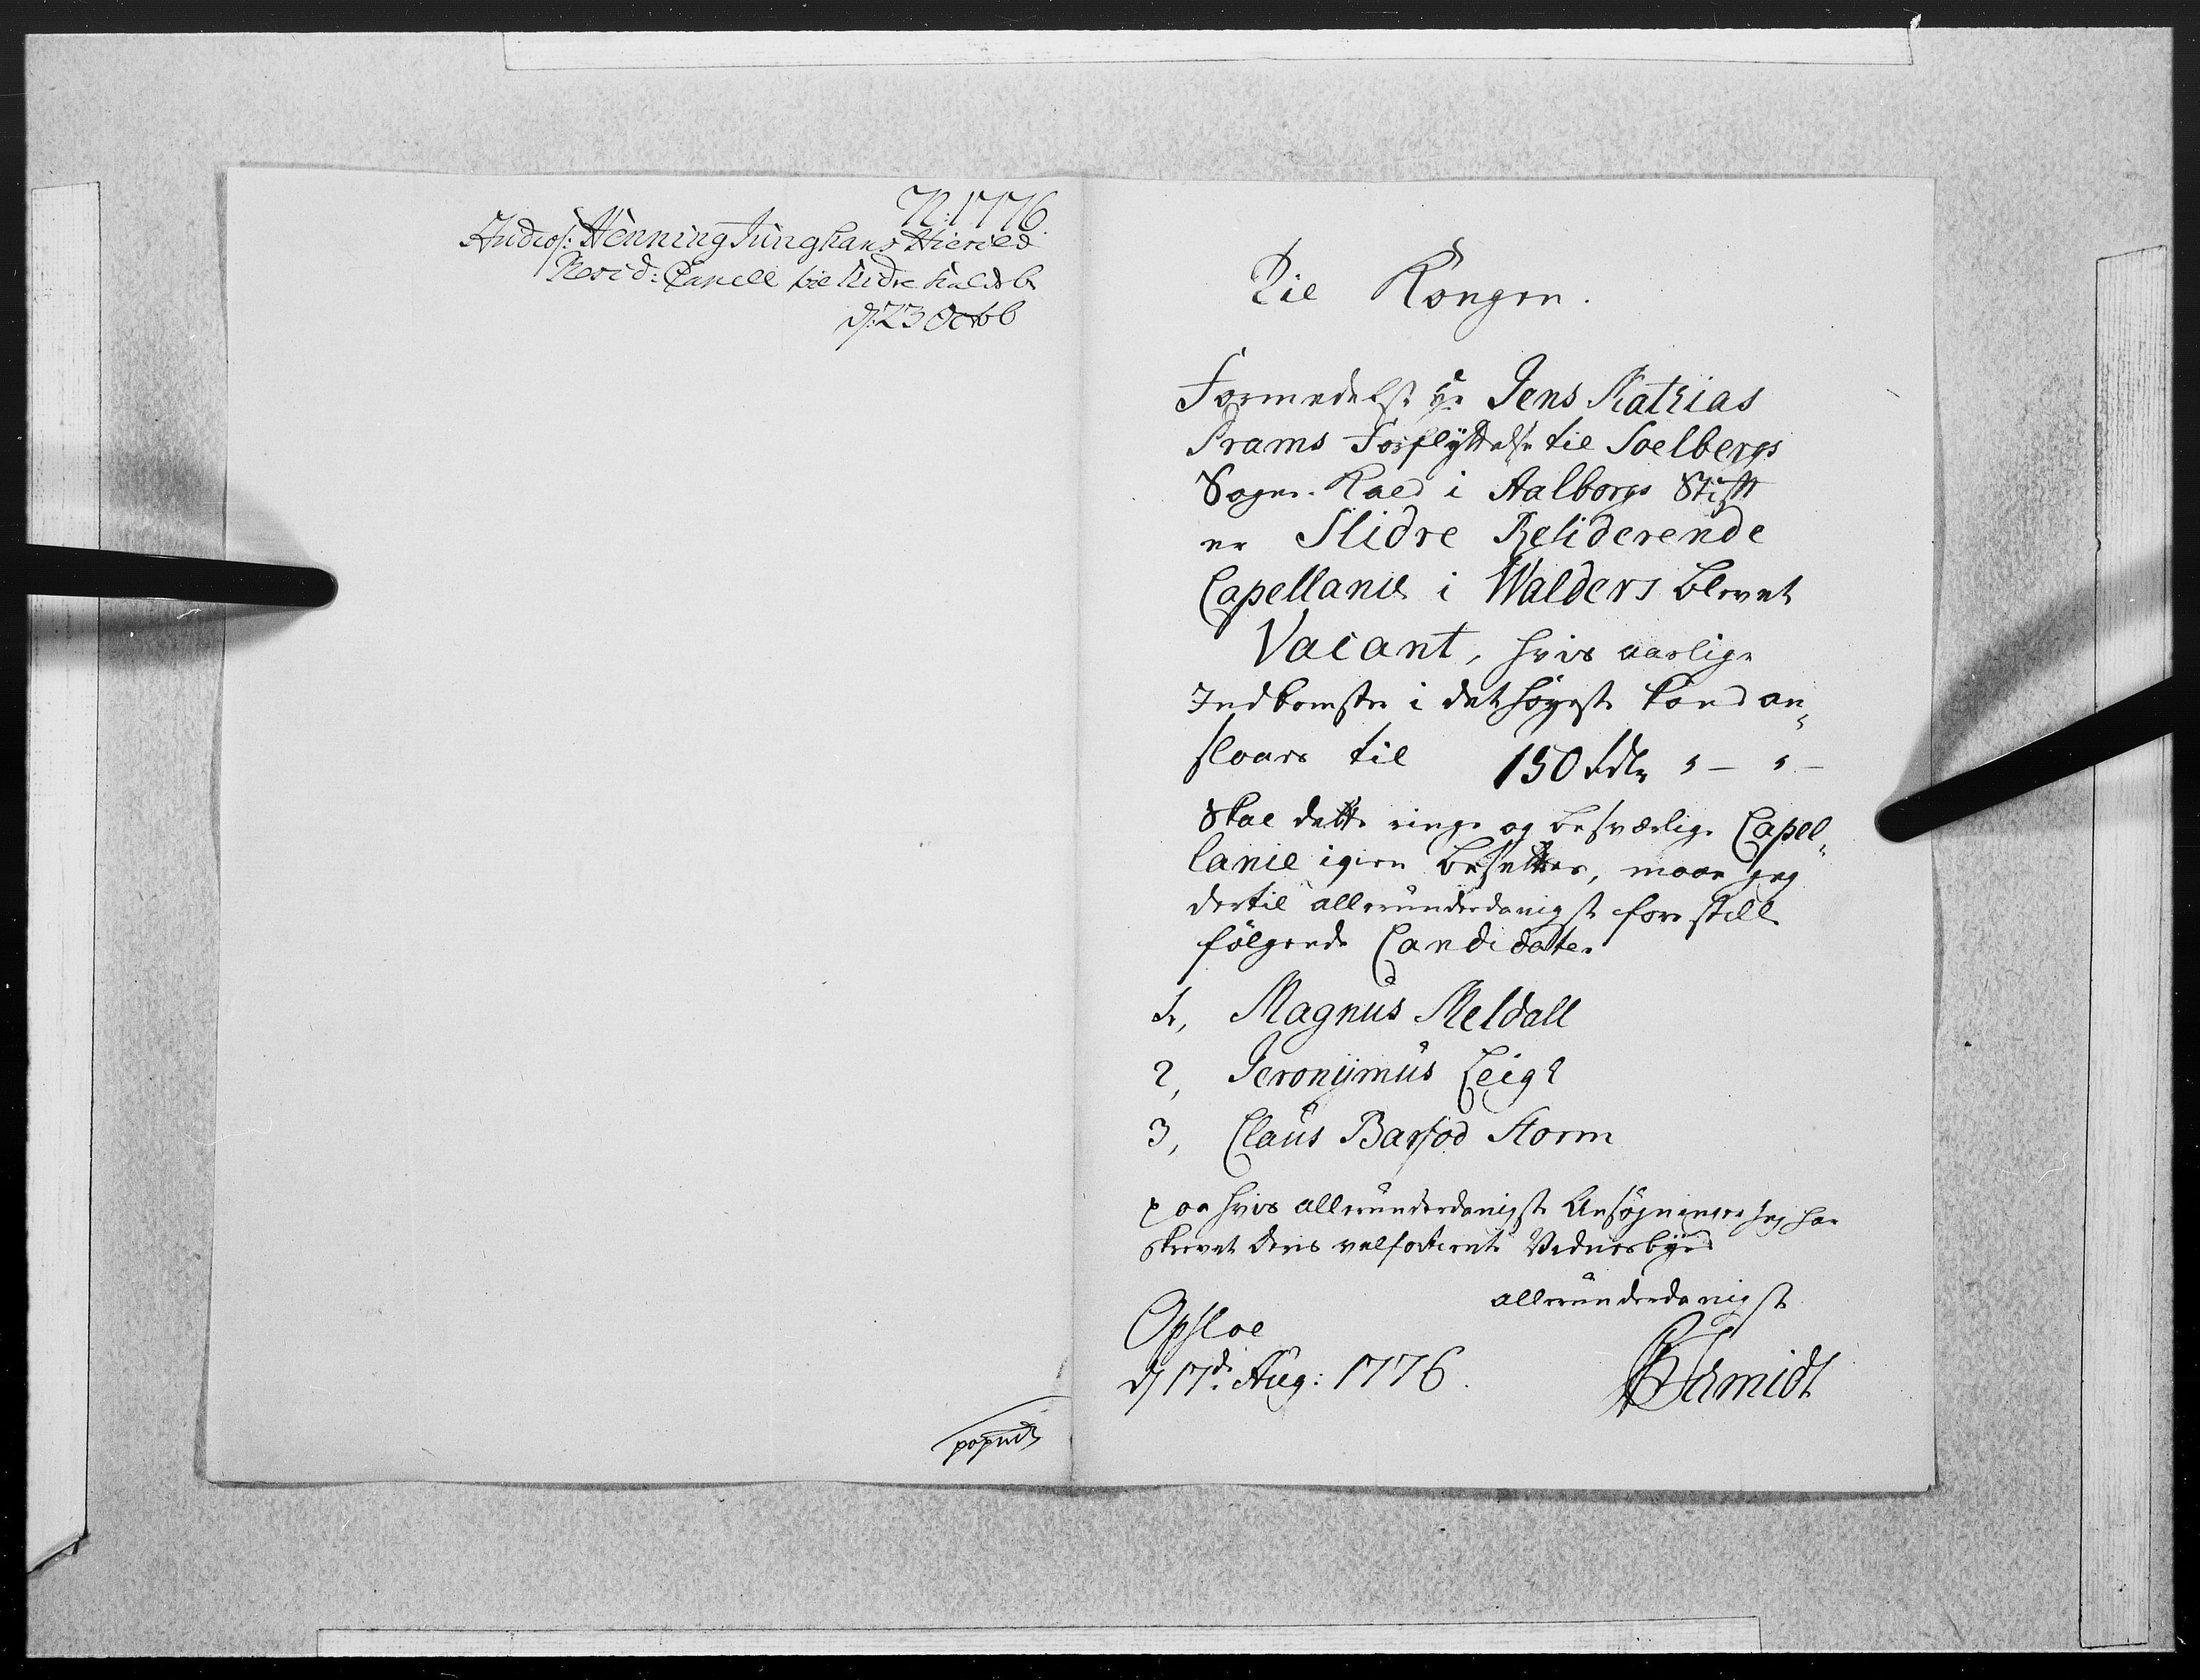 N: 1776.
Studios: Henning Junghans Hierild
Resid: Capell til Slidre Kald b
d: 23 Octob
Til Kongen.
Formedelst Hr Jens Mathias
Prams Forflyttelse til Soelbergs
Sogne-Kald i Aalborgs Stift
er Slidre Residerende
Capellanie i Walders blevet
Vacant, hvis aarlige
Indkomster i det høyeste kand an„
slaaes til 150 rdlr „ – „ –
Skal dette ringe og besværlige Capel„
lanie igien besættes, maae jeg
dertil allerunderdanigst forestille
følgende Candidater
1, Magnus Meldall
2, Jeronÿmus Leigh
3, Claus Barfod Storm
paa hvis allerunderdanigste Ansøgninger jeg har
skrevet deres velfortiente Vidnesbyrd
allerunderdanigst
Opsloe
d 17de Aug: 1776.
FSchmidt